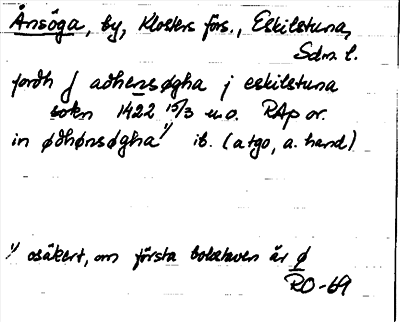 Ånsöga, by, Klosters förs., Eskilstuna,
Sdm. l.
jordh j adhensøgha j eskilstuna
sokn 1422 15/3 u.o. RAp or.
in ødhønsøgha 1/ ib. (atgo, a. hand)
1/ osäkert, om första bokstaven är ø
RO-69